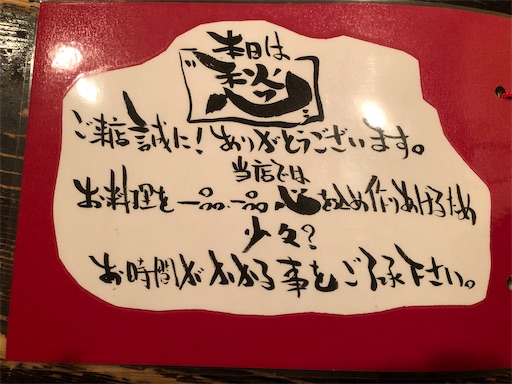 本日は
ご来店誠に!ありがとうございます。
当店では
お料理を一品一品心を込め作りあげるため
少々?
お時間がかかる事をご了承下さい。